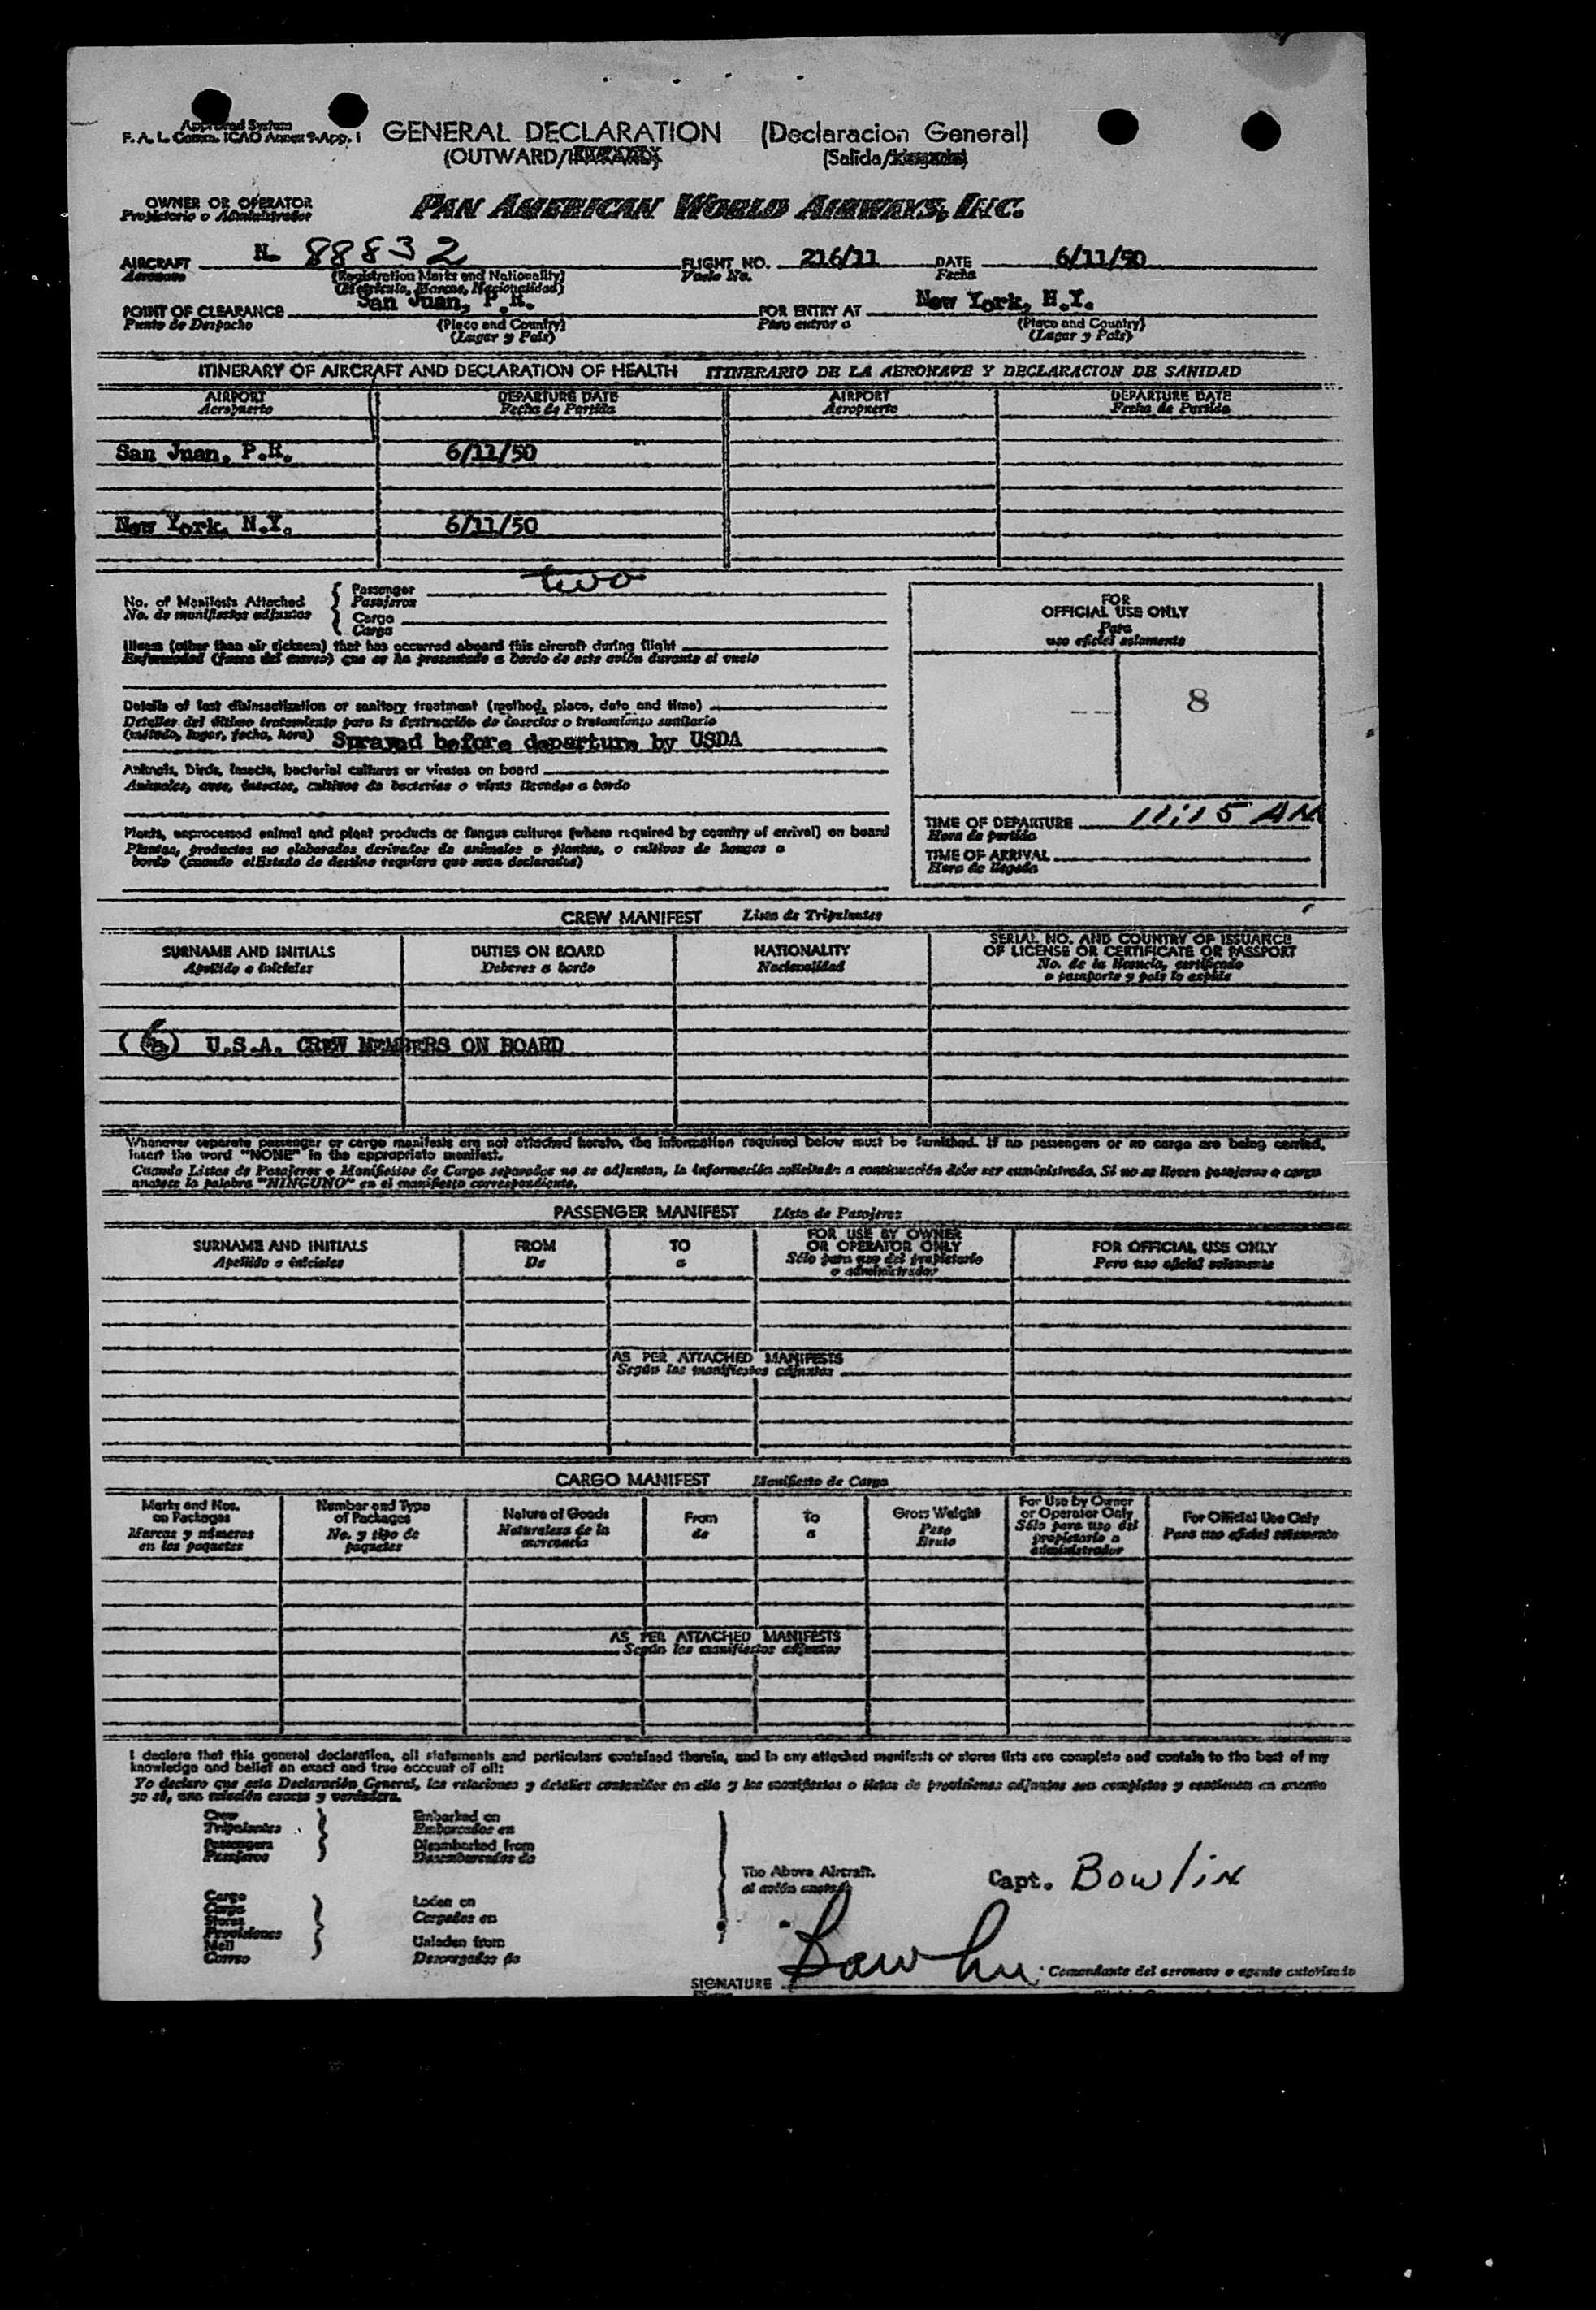 Approved System
F. A. L. Comm. ICAO Annex 9-App. I
GENERAL DECLARATION (Declaracion General)
(OUTWARD/INWARD) (Salida/Llegada)
OWNER OR OPERATOR
Propietario o Administrador
PAN AMERICAN WORLD AIRWAYS, INC.
AIRCRAFT N- 88832 FLIGHT NO. 216/11 DATE 6/11/50
Aeronave (Registration Marks and Nationality) Vuelo No. Fecha
(Matricula, Marcas, Nacionalidad)
POINT OF CLEARANCE San Juan, P.R. FOR ENTRY AT New York, N.Y.
Punto de Despacho (Place and Country) Para entrar a (Place and Country)
(Lugar y Pais) (Lugar y Pais)
ITINERARY OF AIRCRAFT AND DECLARATION OF HEALTH ITINERARIO DE LA AERONAVE Y DECLARACION DE SANIDAD
AIRPORT DEPARTURE DATE AIRPORT DEPARTURE DATE
Aeropuerto Fecha de Partida Aeropuerto Fecha de Partida
San Juan, P.R. 6/11/50
New York, N.Y. 6/11/50
No. of Manifests Attached
No. de manifiestos adjuntos
Passenger two
Pasajeros
Cargo
Carga
Illness (other than air sickness) that has occurred aboard this aircraft during flight
Enfermedad (fuera del mareo) que se ha presentado a bordo de este avión durante el vuelo
Details of last disinsectization or sanitary treatment (method, place, date and time)
Detalles del último tratamiento para la destrucción de insectos o tratamiento sanitario
(método, lugar, fecha, hora) Sprayed before departure by USDA
Animals, birds, insects, bacterial cultures or viruses on board
Animales, aves, insectos, cultivos de bacterias o virus llevados a bordo
Plants, unprocessed animal and plant products or fungus cultures (where required by country of arrival) on board
Plantas, productos no elaborados derivados de animales o plantas, o cultivos de hongos a
bordo (cuando el Estado de destino requiera que sean declarados)
FOR
OFFICIAL USE ONLY
Para
uso oficial solamente
8
TIME OF DEPARTURE 11:15 AM
Hora de partida
TIME OF ARRIVAL
Hora de llegada
CREW MANIFEST Lista de Tripulantes
SURNAME AND INITIALS DUTIES ON BOARD NATIONALITY SERIAL NO. AND COUNTRY OF ISSUANCE
OF LICENSE OR CERTIFICATE OR PASSPORT
Apellido e iniciales Deberes a bordo Nacionalidad No. de la licencia, certificado
o pasaporte y pais lo expide
(6) U.S.A. CREW MEMBERS ON BOARD
Whenever separate passenger or cargo manifests are not attached hereto, the information required below must be furnished. If no passengers or no cargo are being carried,
insert the word "NONE" in the appropriate manifest.
Cuando Listas de Pasajeros o Manifiestos de Carga separados no se adjuntan, la información solicitada a continuación debe ser suministrada. Si no se llevan pasajeros o carga
anótese la palabra "NINGUNO" en el manifiesto correspondiente.
PASSENGER MANIFEST Lista de Pasajeros
SURNAME AND INITIALS FROM TO FOR USE BY OWNER
OR OPERATOR ONLY FOR OFFICIAL USE ONLY
Apellido e iniciales De a Sólo para uso del propietario
o administrador Para uso oficial solamente
AS PER ATTACHED MANIFESTS
Según los manifiestos adjuntos
CARGO MANIFEST Manifiesto de Carga
Marks and Nos.
on Packages
Marcas y números
en los paquetes
Number and Type
of Packages
No. y tipo de
paquetes
Nature of Goods
Naturaleza de la
mercancia
From
de
To
a
Gross Weight
Peso
Bruto
For Use by Owner
or Operator Only
Sólo para uso del
propietario o
administrador
For Official Use Only
Para uso oficial solamente
AS PER ATTACHED MANIFESTS
Según los manifiestos adjuntos
I declare that this general declaration, all statements and particulars contained therein, and in any attached manifests or stores lists are complete and contain to the best of my
knowledge and belief an exact and true account of all:
Yo declaro que esta Declaración General, las relaciones y detalles contenidos en ella y los manifiestos o listas de provisiones adjuntos son completos y contienen en cuanto
yo sé, una relación exacta y verdadera.
Crew
Tripulantes
Passengers
Pasajeros
Embarked on
Embarcados en
Disembarked from
Desembarcados de
Cargo
Carga
Stores
Provisiones
Mail
Correo
Laden on
Cargados en
Unladen from
Descargados de
The Above Aircraft.
el avión anotado
Capt. Bowlin
SIGNATURE Bowlin
Comandante del aeronave o agente autorizado